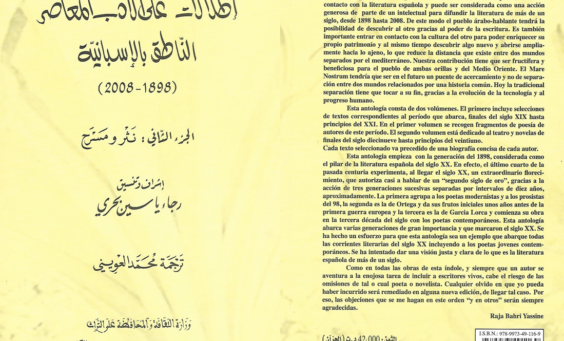 إطلالات على الأدب المعاصر
الناطق بالإسبانية
(1898-2008)
الجزء الثاني: نثر ومسرح
إشراف وتنسيق
رجاء ياسين بحري
ترجمة محمّد العويني
وزارة الثقافة والمحافظة على التراث
contacto con la literatura española y puede ser considerada como una acción
generosa de parte de un intelectual para difundir la literatura de más de un
siglo, desde 1898 hasta 2008. De este modo el pueblo árabo-hablante tendrá la
posibilidad de descubrir al otro gracias al poder de la escritura. Es también
importante entrar en contacto con la cultura del otro para poder enriquecer su
propio patrimonio y al mismo tiempo descubrir algo nuevo y abrirse amplia-
mente hacia lo ajeno, lo que reduce la distancia que existe entre dos mundos
separados por el mediterráneo. Nuestra contribución tiene que ser fructífera y
beneficiosa para el pueblo de ambas orillas y del Medio Oriente. El Mare
Nostrum tendría que ser en el futuro un puente de acercamiento y no de separa-
ción entre dos mundos relacionados por una historia común. Hoy la tradicional
separación tiene que tocar a su fin, gracias a la evolución de la tecnología y al
progreso humano.
Esta antología consta de dos volúmenes. El primero incluye selecciones
de textos correspondientes al período que abarca, finales del siglo XIX hasta
principios del XXI. En el primer volumen se recogen fragmentos de poesía de
autores de este período. El segundo volumen está dedicado al teatro y novelas de
finales del siglo diecinueve hasta principios del veintiuno.
Cada texto seleccionado va precedido de una biografía concisa de cada autor.
Esta antología empieza con la generación del 1898, considerada como
el pilar de la literatura española del siglo XX. En efecto, el último cuarto de la
pasada centuria experimenta, al llegar el siglo XX, un extraordinario floreci-
miento, que autoriza casi a hablar de un "segundo siglo de oro", gracias a la
acción de tres generaciones sucesivas separadas por intervalos de diez años,
aproximadamente. La primera agrupa a los poetas modernistas y a los prosistas
del 98, la segunda es la de Ortega y da sus frutos iniciales unos años antes de la
primera guerra europea y la tercera es la de García Lorca y comienza su obra
en la tercera década del siglo con los poetas contemporáneos. Esta antología
abarca varias generaciones de gran importancia y que marcaron el siglo XX. Se
ha hecho un esfuerzo para que esta antología sea un ejemplo que abarque todas
las corrientes literarias del siglo XX incluyendo a los poetas jovenes contem-
poráneos. Se ha intentado dar una visión justa y clara de lo que es la literatura
española de más de un siglo.
Como en todas las obras de esta índole, y siempre que un autor se
aventura a la enojosa tarea de incluir a escritores vivos, cabe el riesgo de las
omisiones de tal o cual poeta o novelista. Cualquier olvido en que yo pueda
haber incurrido será remediado en alguna nueva edición, de llegar tal caso. Por
eso, las objeciones que se me hagan en este orden "y en otros" serán siempre
agradecidas.
Raja Bahri Yassine
I.S.B.N.: 978-9973-49-116-9